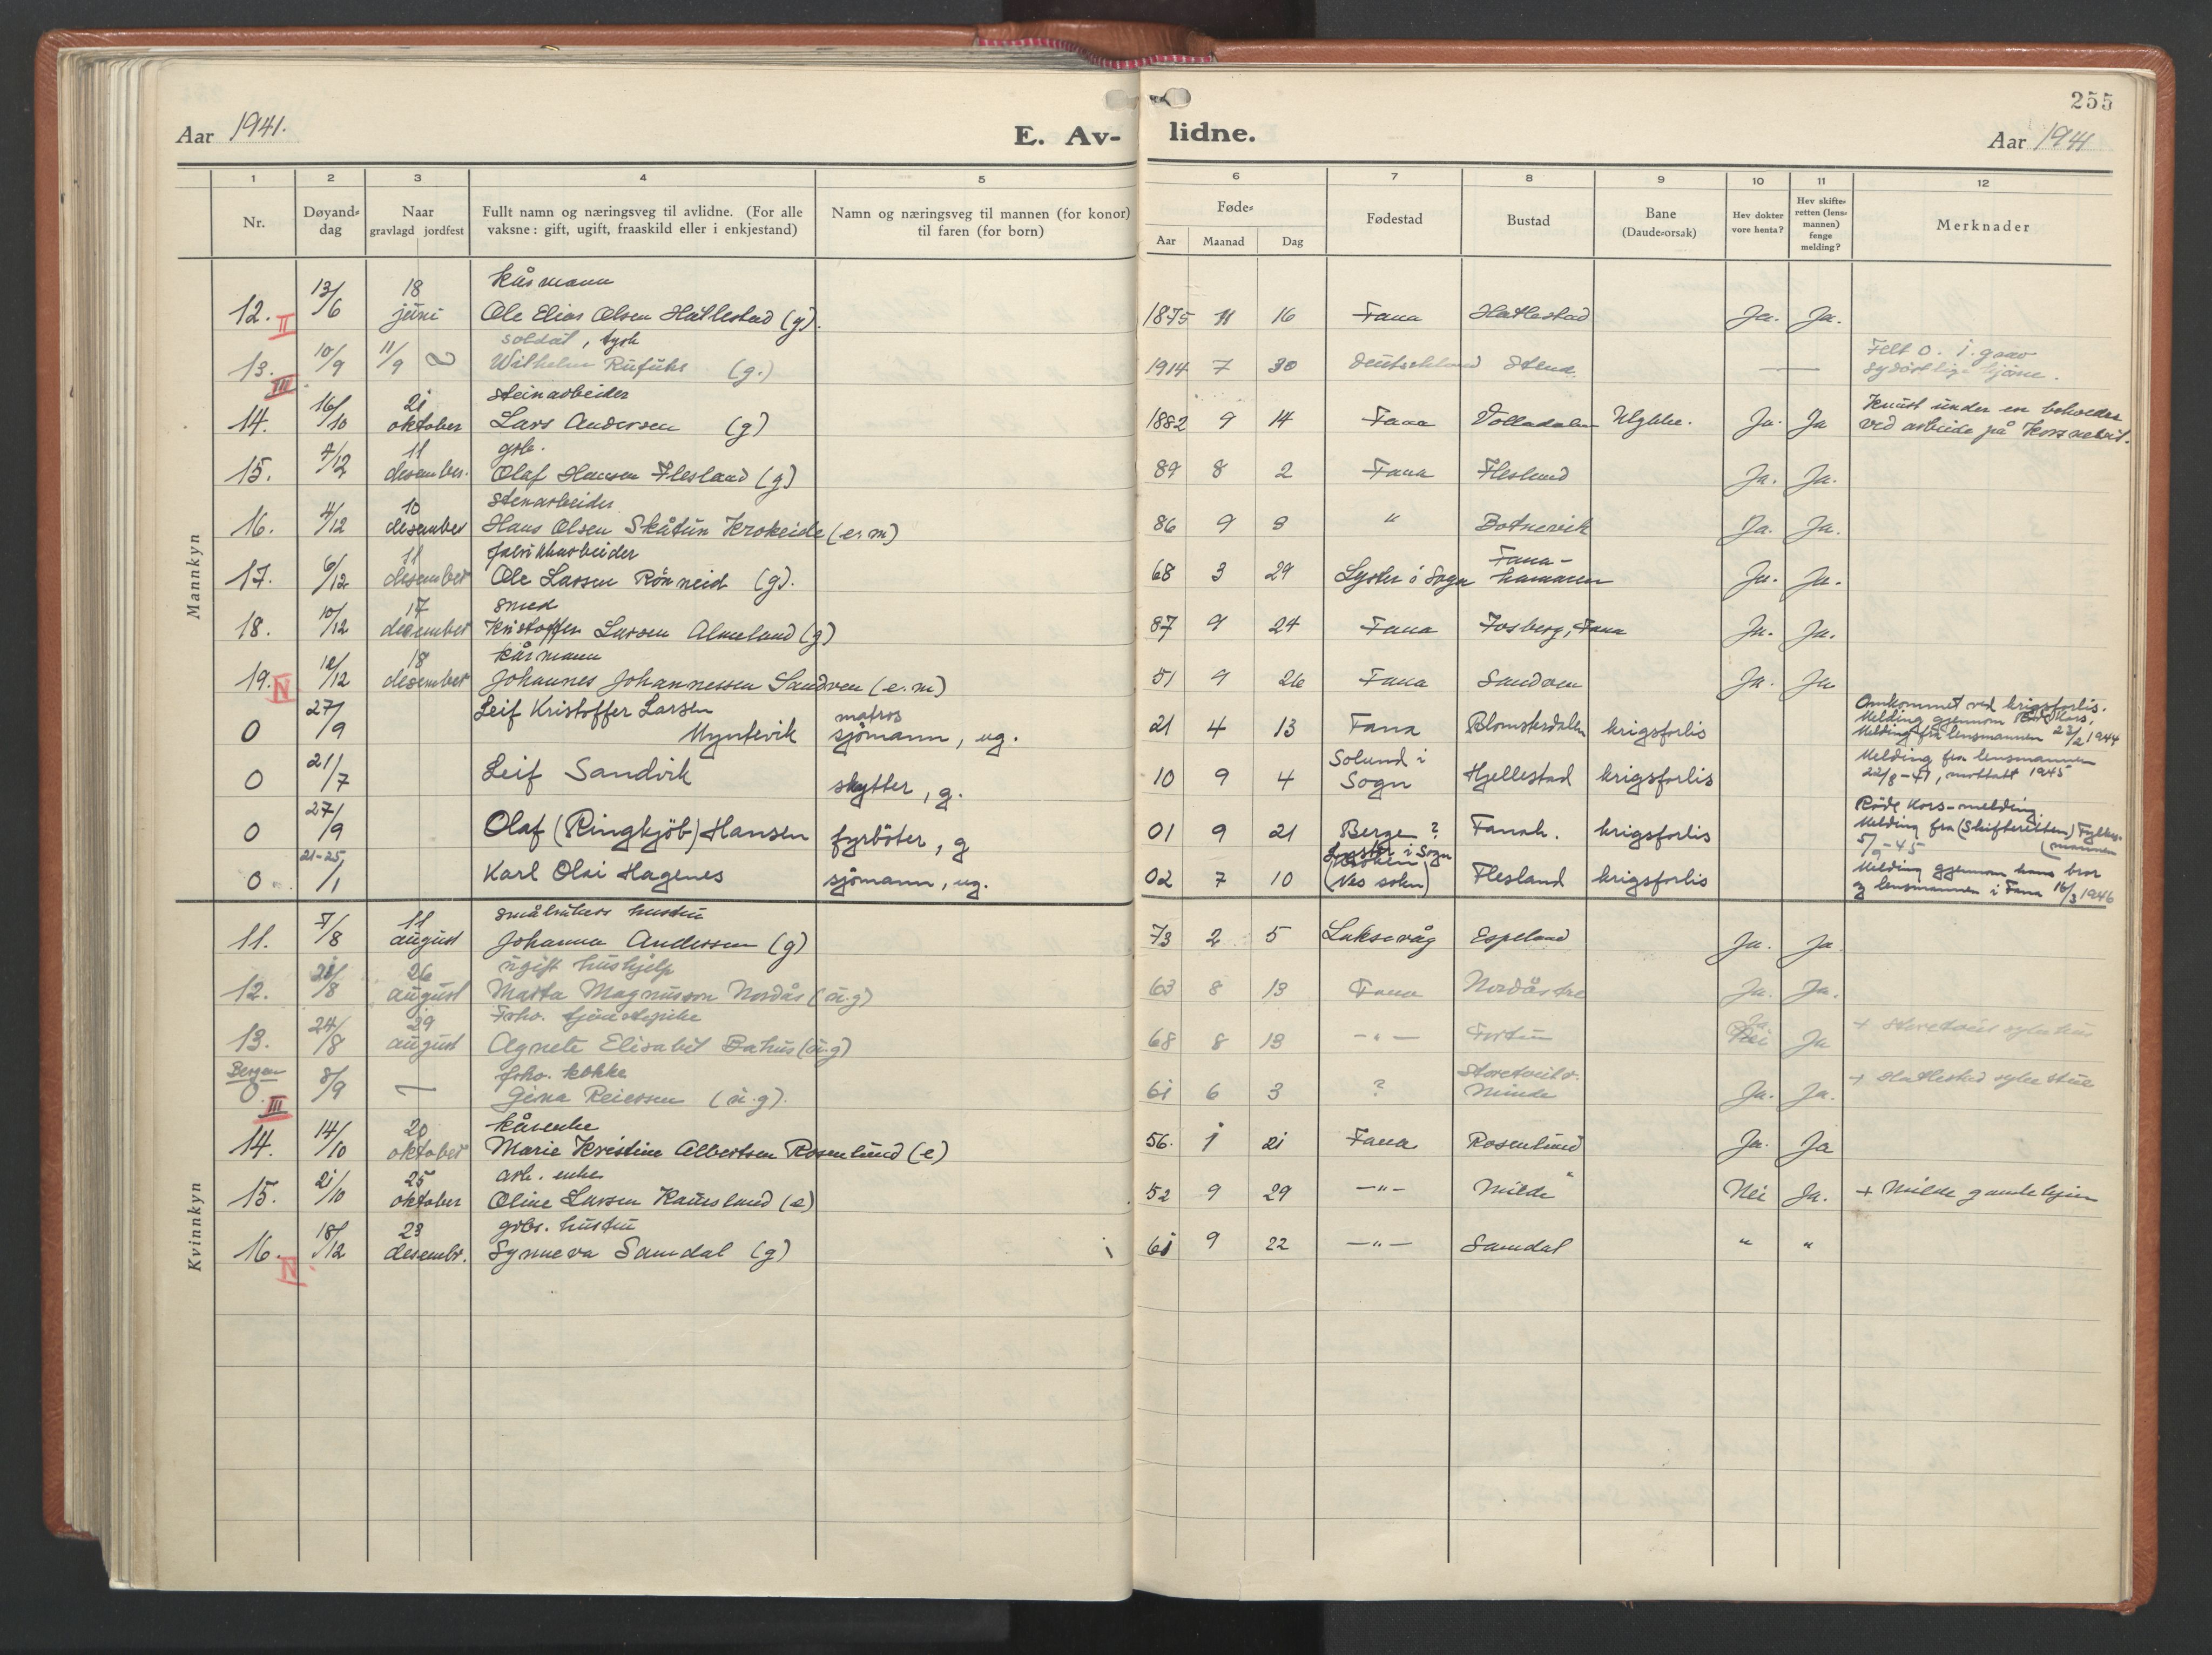 255
Aar 1941. E. Av- lidne. Aar 1941
1 2 3 4 5 6 7 8 9 10 11 12
Nr. Døyand-dag Naar gravlagd jordfest Fullt namn og næringsveg til avlidne. (For alle vaksne: gift, ugift, fraaskild eller i enkjestand) Namn og næringsveg til mannen (for konor) til faren (for born)Føde- Aar Maanad Dag Fødestad Bustad Bane (Daude-orsak) Hev dokter vore henta? Hev skifte-retten (lens-mannen) fenge melding? Merknader
Mannkyn
kårmann
12. II 13/6 18 juni Ole Elias Olsen Hatlestad (g). 1875 11 16 Fana Hatlestad Ja. Ja.
soldat, tysk
13. III 10/9 11/9 Wilhelm Rufuhs (g.) 1914 7 30 Deutschland Stend. — Felt O. i. grav sydöstlige hjörne.
steinarbeider
14. 16/10 21 oktober Lars Andersen (g) 1882 9 14 Fana Volladalen Ulykke. Ja. Ja Knust under en ved arbeide på
grb.
15. 4/12 11 desember. Olaf Hansen Flesland (g) 89 8 2 Fana Flesland Ja. Ja.
stenarbeider
16. 4/12 10 desember Hans Olsen Skåtun Krokeide (e.m) 86 9 3 " Botnevik Ja. Ja.
fabrikkarbeider
17. 6/12 11 desember Ole Larsen Rönneid (g). 68 3 29 Lyster i Sogn Fana-hammeren Ja. Ja.
smed
18. 10/12 17 desember Kristoffer Larsen Almeland (g) 87 9 24 Fana Fosberg, Fana Ja. Ja.
kårmann
19. IV 12/12 18 desember Johannes Johannessen Sandven (e.m) 51 9 26 Fana Sandven Ja. Ja
O 27/9 Leif Kristoffer Larsen Myntevik matros sjömann, ug. 21 4 13 Fana Blomsterdalen krigsforlis Omkommet ved krigsforlis. Melding gjennom Röde Kors. Melding fra lensmannen 23/2 1944
O 21/7 Leif Sandvik skytter, g. 10 9 4 Solund i Sogn Hjellestad krigsforlis Melding fra lensmannen 22/8-41, mottatt 1945
O 27/9 Olaf (Ringkjöb) Hansen fyrböter, g 01 9 21 Berge ? Fanah. krigsforlis Röde Kors-melding Melding fra (Skifteretten) Fylkesmannen 5/9-45
O 21-25/1 Karl Olai Hagenes sjömann, ug. 02 7 10 Luster i Sogn (Nes sokn) Flesland krigsforlis Melding gjennom hans bror og lensmannen i Fana 16/3 1946
Kvinnkyn
småbrukers hustru
11. 7/8 11 august Johanna Andersen (g) 73 2 5 Laksevåg Espeland Ja. Ja
ugift hushjelp
12. 21/8 26 august Marta Magnusson Nordås (u.g) 63 8 13 Fana Nordås Ja. Ja.
Forhv. tjenestepike
13. 24/8 29 august Agnete Elisabet Bahus (u.g) 68 8 13 -"- Fortun Ja Nei Ja + Storetveit sykehus
forhv. kokke
Bergen O. III 8/9 — Gina Reiersen (u.g). 61 6 3 ? Storetveitv. Minde Ja. Ja. + Hatlestad sykestue
kårenke
14. 14/10 20 oktober Marie Kristine Albertsen Rosenlund (e) 56. 1 21 Fana Rosenlund Ja. Ja
arb. enke
15. 21/10 25 oktober Oline Larsen Raunsland (e) 52 9 29 -"- Milde Nei Ja. + Milde gamlehjem
grbr. hustru
16. IV. 18/12 23 desembr. Synneva Samdal (g) 61 9 22 -"- Samdal " "